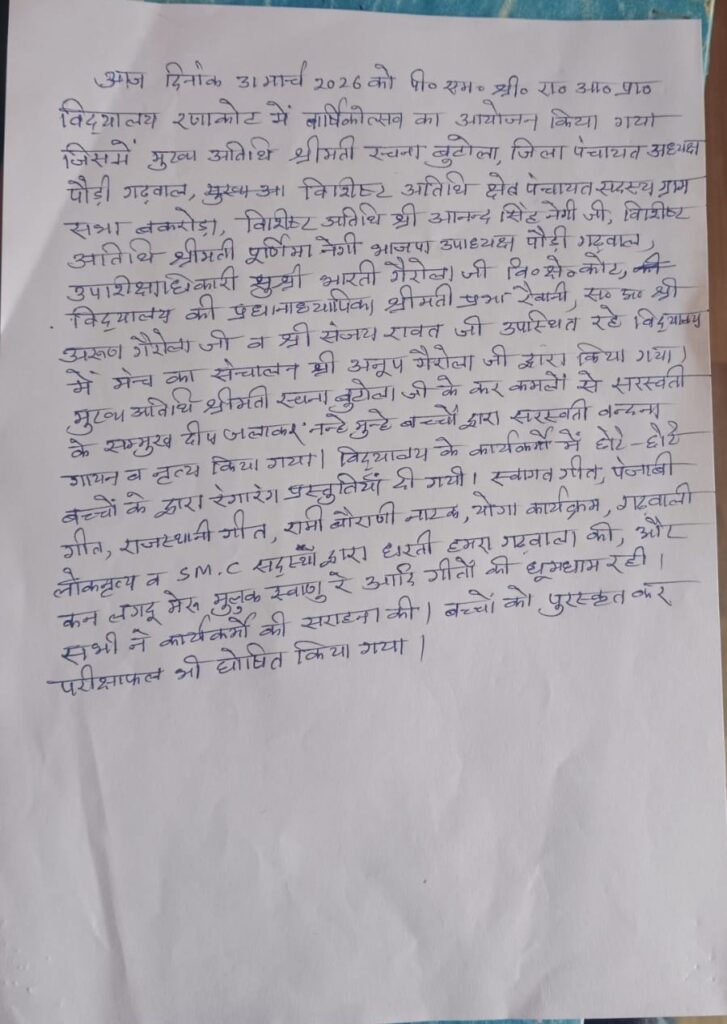 आज दिनांक 31 मार्च 2026 को पी० एम० श्री० रा० आ० प्रा०
विद्यालय रणाकोट में वार्षिकोत्सव का आयोजन किया गया
जिसमें मुख्य अतिथि श्रीमती रचना बुटोला, जिला पंचायत अध्यक्ष
पौड़ी गढ़वाल, विशिष्ट अतिथि क्षेत्र पंचायत सदस्य ग्राम
सभा बकरोड़ा, विशिष्ट अतिथि श्री आनन्द सिंह नेगी जी, विशिष्ट
अतिथि श्रीमती पूर्णिमा नेगी भाजपा उपाध्यक्ष पौड़ी गढ़वाल,
उपशिक्षाधिकारी सुश्री आरती गैरोला जी वि० क्षे० कोट,
विद्यालय की प्रधानाध्यापिका श्रीमती प्रभा रैवानी, स० अ० श्री
अरूण गैरोला जी व श्री संजय रावत जी उपस्थित रहे विद्यालय
में मंच का संचालन श्री अनूप गैरोला जी द्वारा किया गया)
मुख्य अतिथि श्रीमती रचना बुटोला जी के कर कमलों से सरस्वती
के सम्मुख दीप जलाकर नन्हे मुन्हे बच्चों द्वारा सरस्वती वन्दना
गायन व नृत्य किया गया| विद्यालय के कार्यकर्मों में छोटे-छोटे
बच्चों के द्वारा रंगारंग प्रस्तुतियाँ दी गयी। स्वागत गीत, पंजाबी
गीत, राजस्थानी गीत, रामी बौराणी नाटक, योगा कार्यक्रम, गढ़वाली
लोकनृत्य व S.M.C सदस्यों द्वारा धरती हमरा गढ़वाल की, और
कन लगदू मेरू मुलुक स्वाणु रे आदि गीतों की धूमधाम रही।
सभी ने कार्यकर्मों की सराहना की| बच्चों को पुरस्कृत कर
परीक्षाफल भी घोषित किया गया |